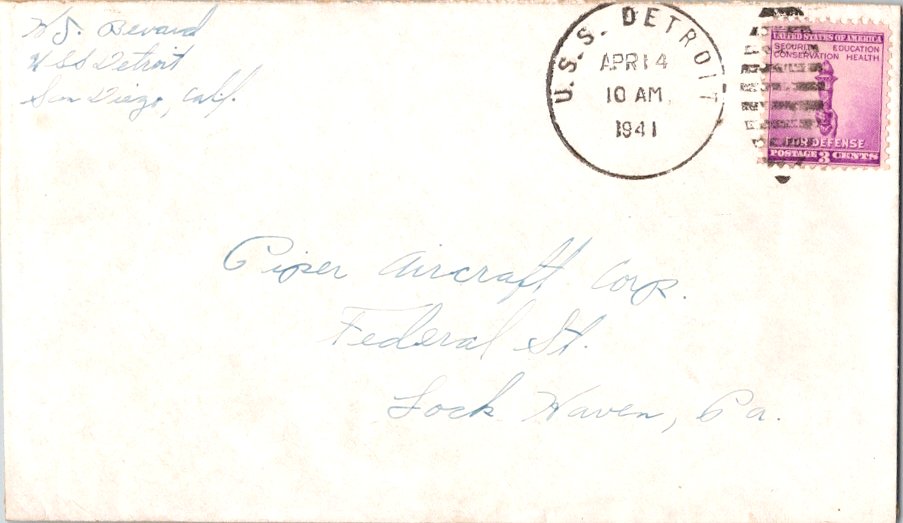 W J. Bevard
USS Detroit
San Diego, Calif.
U.S.S. DETROIT
APR 14
10 AM
1941
UNITED STATES OF AMERICA
SECURITY EDUCATION
CONSERVATION HEALTH
FOR DEFENSE
POSTAGE 3 CENTS
Piper Aircraft Corp.
Federal St.
Lock Haven, Pa.